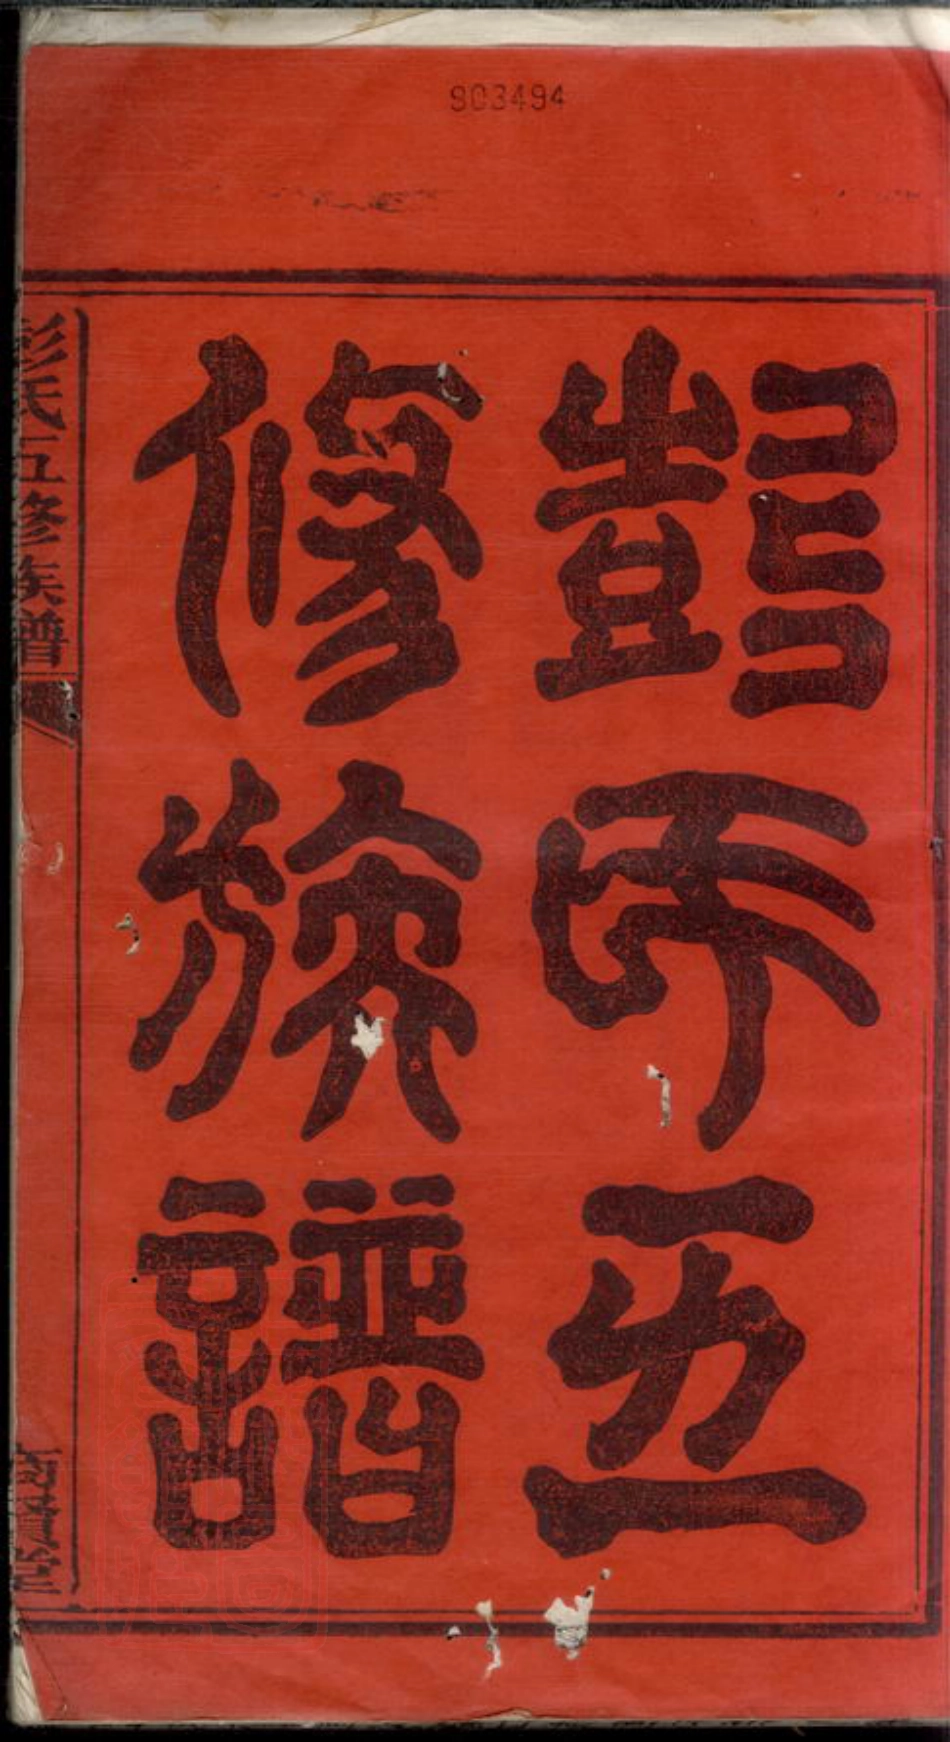 903494
彭氏五
修族譜
彭氏五修族譜